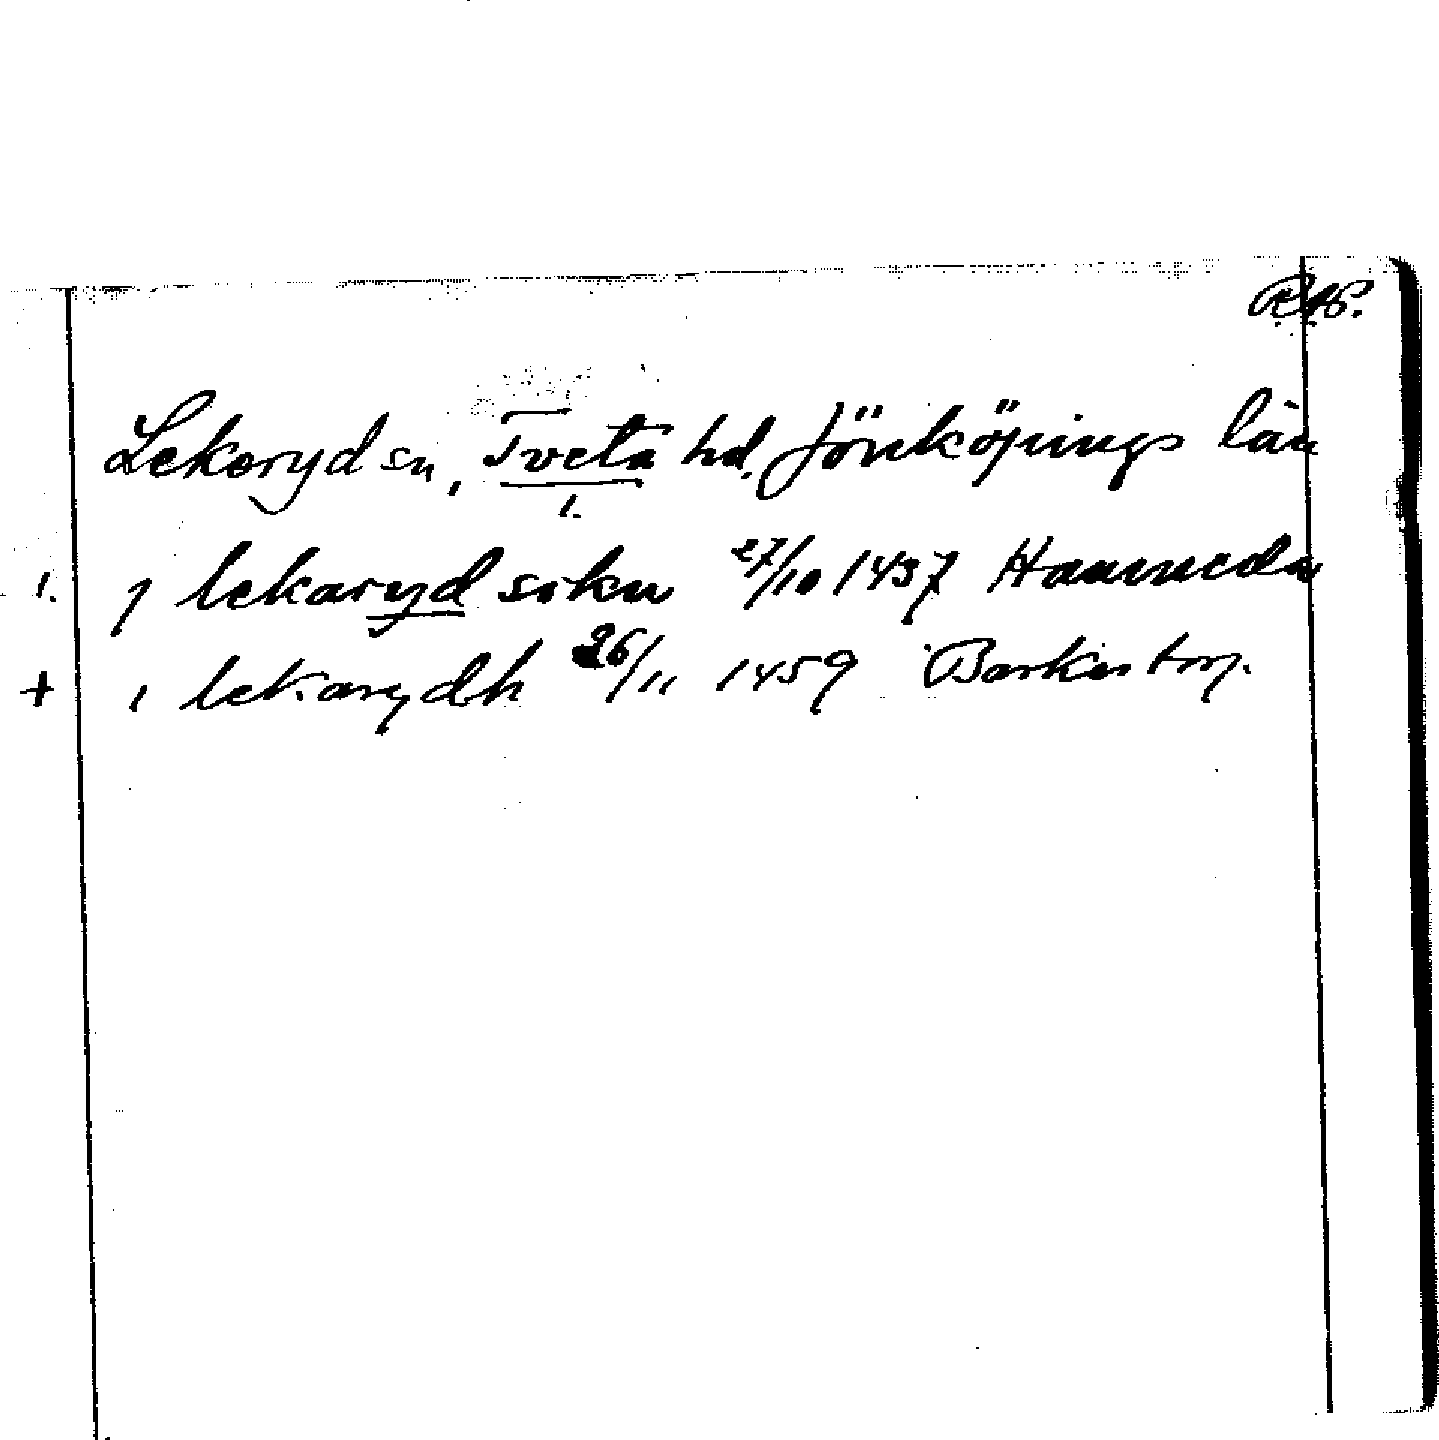 RAP.
Lekeryd sn, Tveta hd. Jönköpings län
1.
1. j lekaryd sokn 27/10 1437
+ i lekarydh 26/11 1459 Barkestorp.